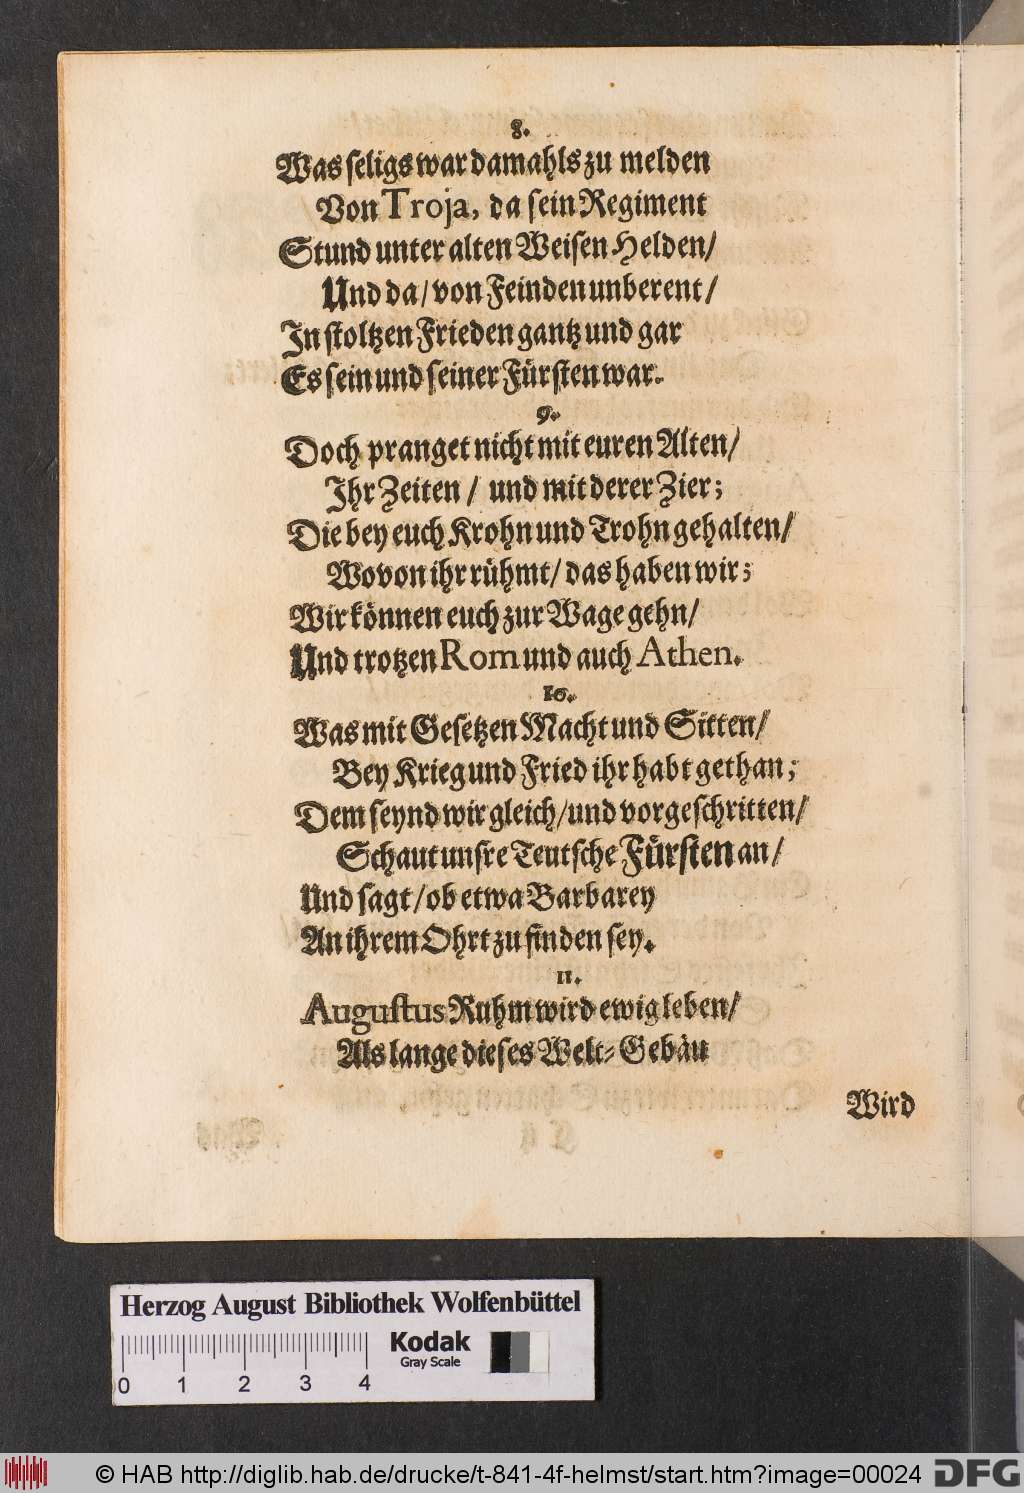 8.
Was ſeligs war damahls zu melden
Von Troja, da ſein Regiment
Stund unter alten Weiſen Helden/
Und da/ von Feinden unberent/
In ſtoltzen Frieden gantz und gar
Es ſein und ſeiner Fürſten war.
9.
Doch pranget nicht mit euren Alten/
Ihr Zeiten / und mit derer Zier;
Die bey euch Krohn und Trohn gehalten/
Wovon ihr rühmt/ das haben wir;
Wir können euch zur Wage gehn/
Und trotzen Rom und auch Athen.
10.
Was mit Geſetzen Macht und Sitten/
Bey Krieg und Fried ihr habt gethan;
Dem ſeynd wir gleich/ und vorgeſchritten/
Schaut unſre Teutſche Fürſten an/
Und ſagt/ ob etwa Barbarey
An ihrem Ohrt zu finden ſey.
11.
Auguſtus Ruhm wird ewig leben/
Als lange dieſes Welt-Gebäu
Wird
Herzog August Bibliothek Wolfenbüttel
Kodak
Gray Scale
0 1 2 3 4
© HAB http://diglib.hab.de/drucke/t-841-4f-helmst/start.htm?image=00024
DFG